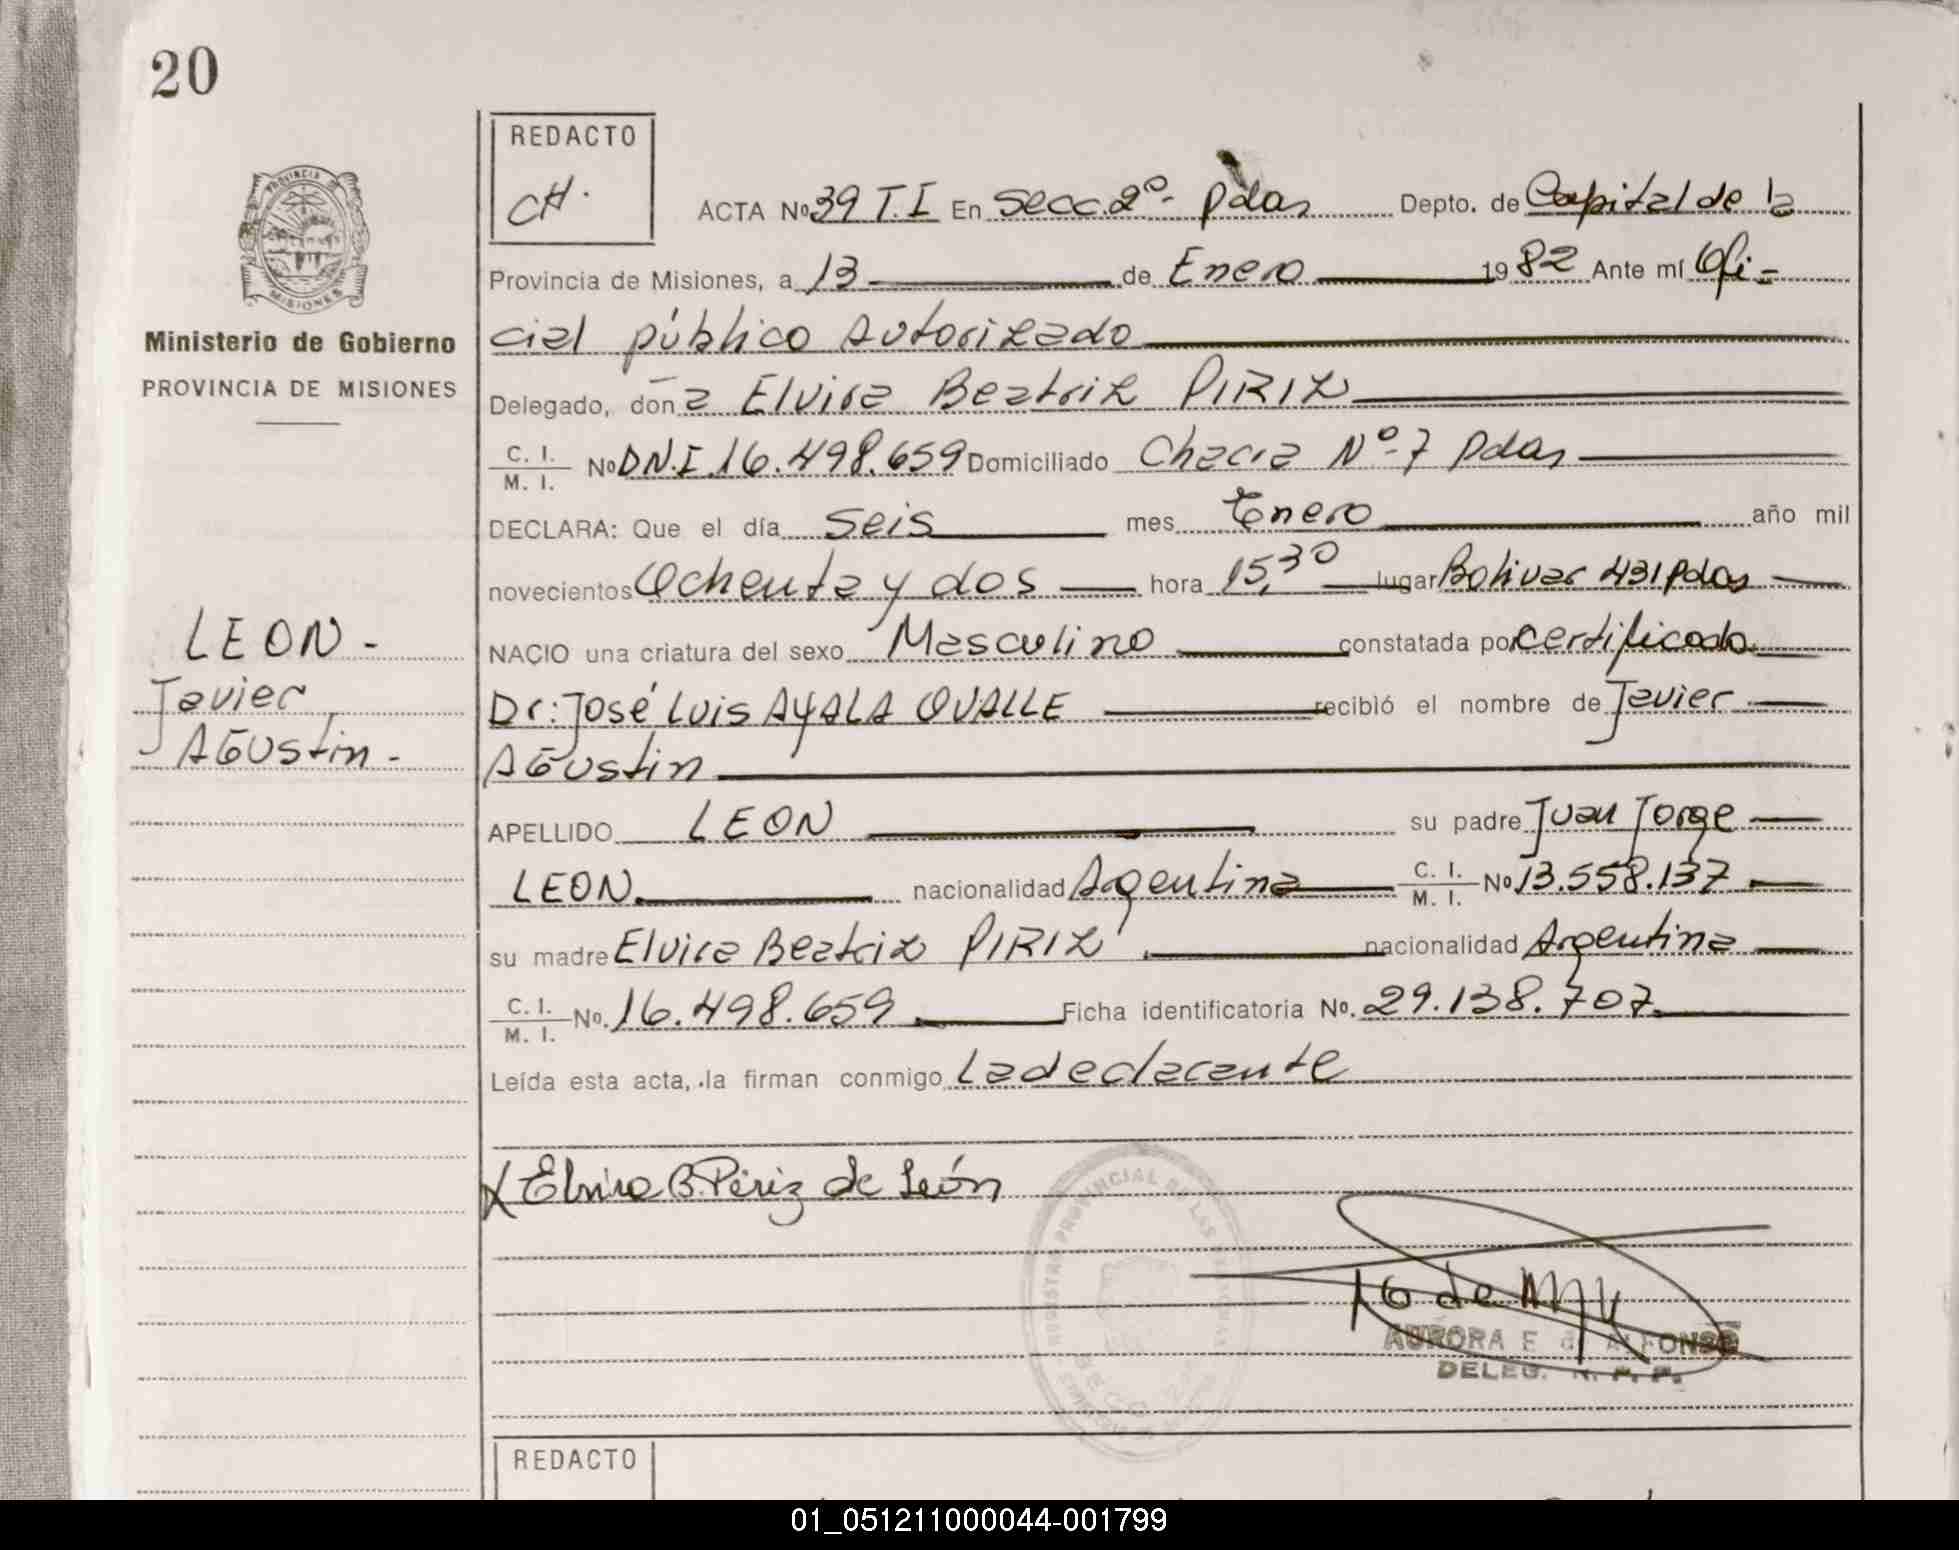 20
PROVINCIA DE
MISIONES
Ministerio de Gobierno
PROVINCIA DE MISIONES
LEON -
Javier
AGUStin -
REDACTO
CH.
ACTA Nº 39 T. I En Secc. 2º - Pdas Depto. de Capital de la
Provincia de Misiones, a 13 de Enero 1982 Ante mí Ofi-
cial público Autorizado
Delegado, doña Elvira Beatriz PIRIZ
C. I. / M. I. Nº D.N.I. 16.498.659 Domiciliado Chacra Nº 7 Pdas
DECLARA: Que el día Seis mes Enero año mil
novecientos Ochenta y dos hora 15,30 lugar Bolivar 431 Pdas
NACIO una criatura del sexo Masculino constatada por certificado
Dr: José Luis AYALA OVALLE recibió el nombre de Javier
AGUStin
APELLIDO LEON su padre Juan Jorge
LEON nacionalidad Argentina C. I. / M. I. Nº 13.558.137
su madre Elvira Beatriz PIRIZ nacionalidad Argentina
C. I. / M. I. Nº. 16.498.659 Ficha identificatoria Nº. 29.138.707
Leída esta acta, la firman conmigo La declarante
X Elvira B. Píriz de León
AURORA E. de ALFONSO
DELEG. R. P. P.
REDACTO
01_051211000044-001799